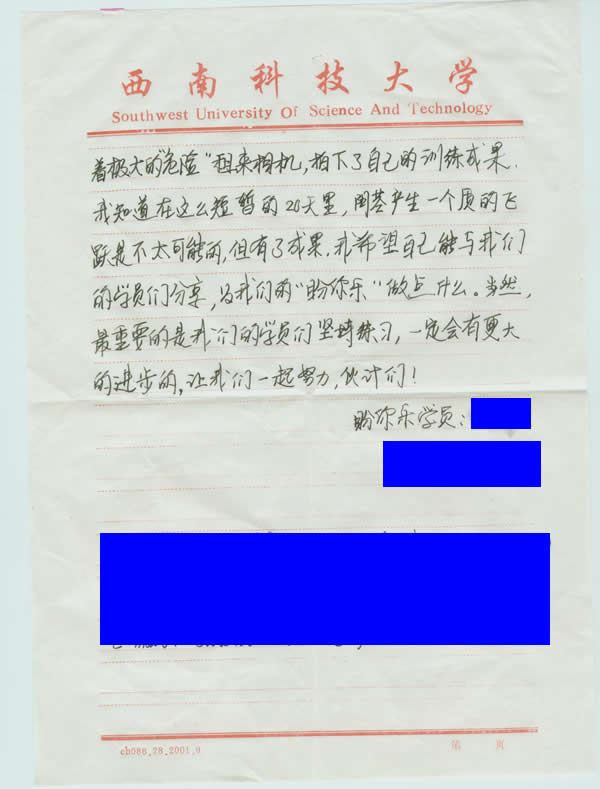 西南科技大学
Southwest University Of Science And Technology
着极大的"危险"租来相机,拍下了自己的训练成果.
我知道在这么短暂的20天里,用若产生一个质的飞
跃是不太可能的,但有了成果,我希望自己能与我们
的学员们分享,为我们的"盼你乐"做点什么。当然,
最重要的是我们的学员们坚持练习,一定会有更大
的进步的,让我们一起努力,伙计们!
盼你乐学员:
cb088.28.2001.9
第 页